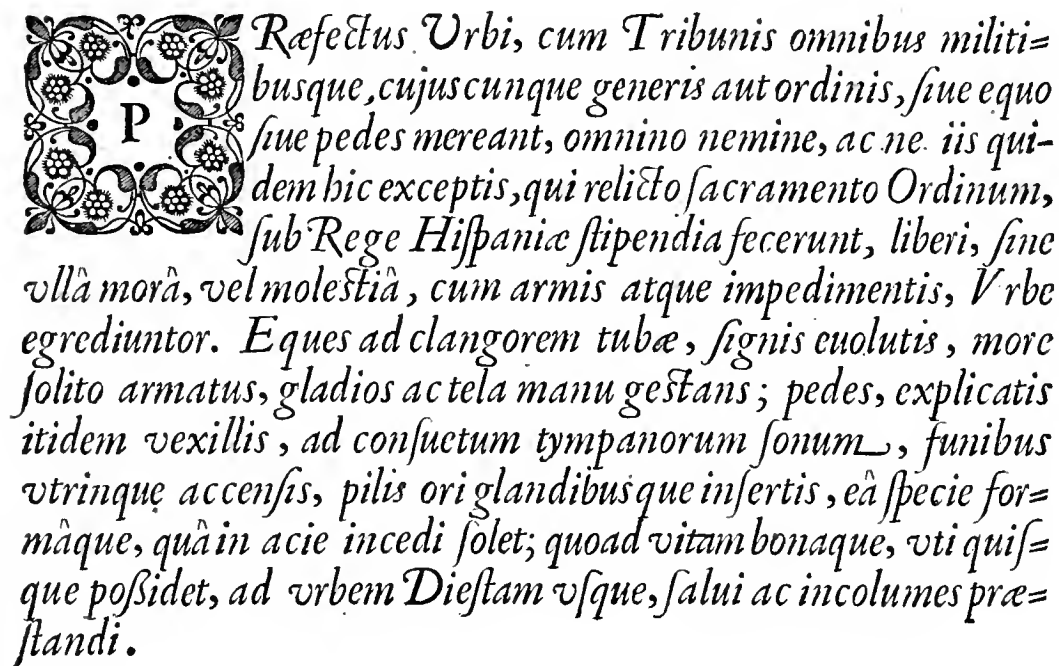 PRæfectus Vrbi, cum Tribunis omnibus militi=
busque, cujuscunque generis aut ordinis, ſiue equo
ſiue pedes mereant, omnino nemine, ac ne iis qui-
dem hic exceptis, qui relicto ſacramento Ordinum,
ſub Rege Hiſpaniæ ſtipendia fecerunt, liberi, ſine
vllâ morâ, vel moleſtiâ, cum armis atque impedimentis, Vrbe
egrediuntor. Eques ad clangorem tubæ, ſignis euolutis, more
ſolito armatus, gladios ac tela manu geſtans; pedes, explicatis
itidem vexillis, ad conſuetum tympanorum ſonum, funibus
vtrinque accenſis, pilis ori glandibusque inſertis, eâ ſpecie for=
mâque, quâ in acie incedi ſolet; quoad vitam bonaque, vti quiſ=
que poßidet, ad vrbem Dieſtam vſque, ſalui ac incolumes præ=
ſtandi.